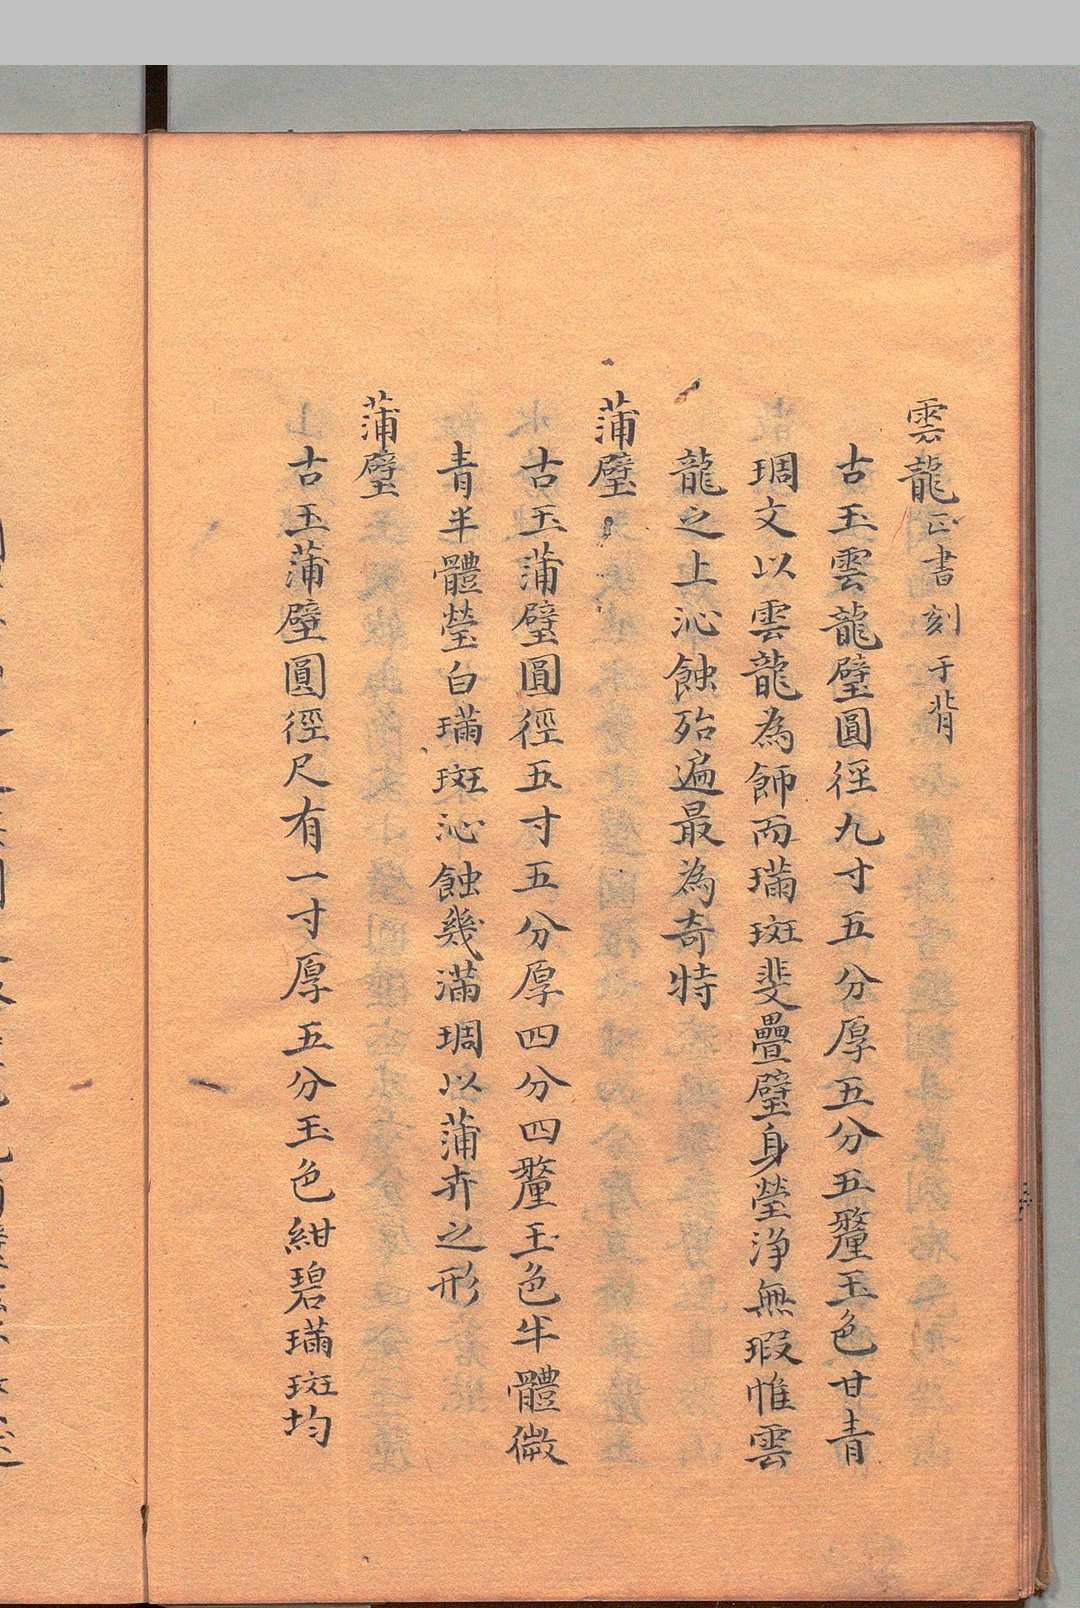 雲龍正書刻于背
古玉雲龍璧圓徑九寸五分厚五分五釐玉色甘青
琱文以雲龍為飾而璊斑斐疊璧身瑩淨無瑕惟雲
龍之上沁蝕殆遍最為奇特
蒲璧
古玉蒲璧圓徑五寸五分厚四分四釐玉色半體微
青半體瑩白璊斑沁蝕幾滿琱以蒲卉之形
蒲璧
古玉蒲璧圓徑尺有一寸厚五分玉色紺碧璊斑均